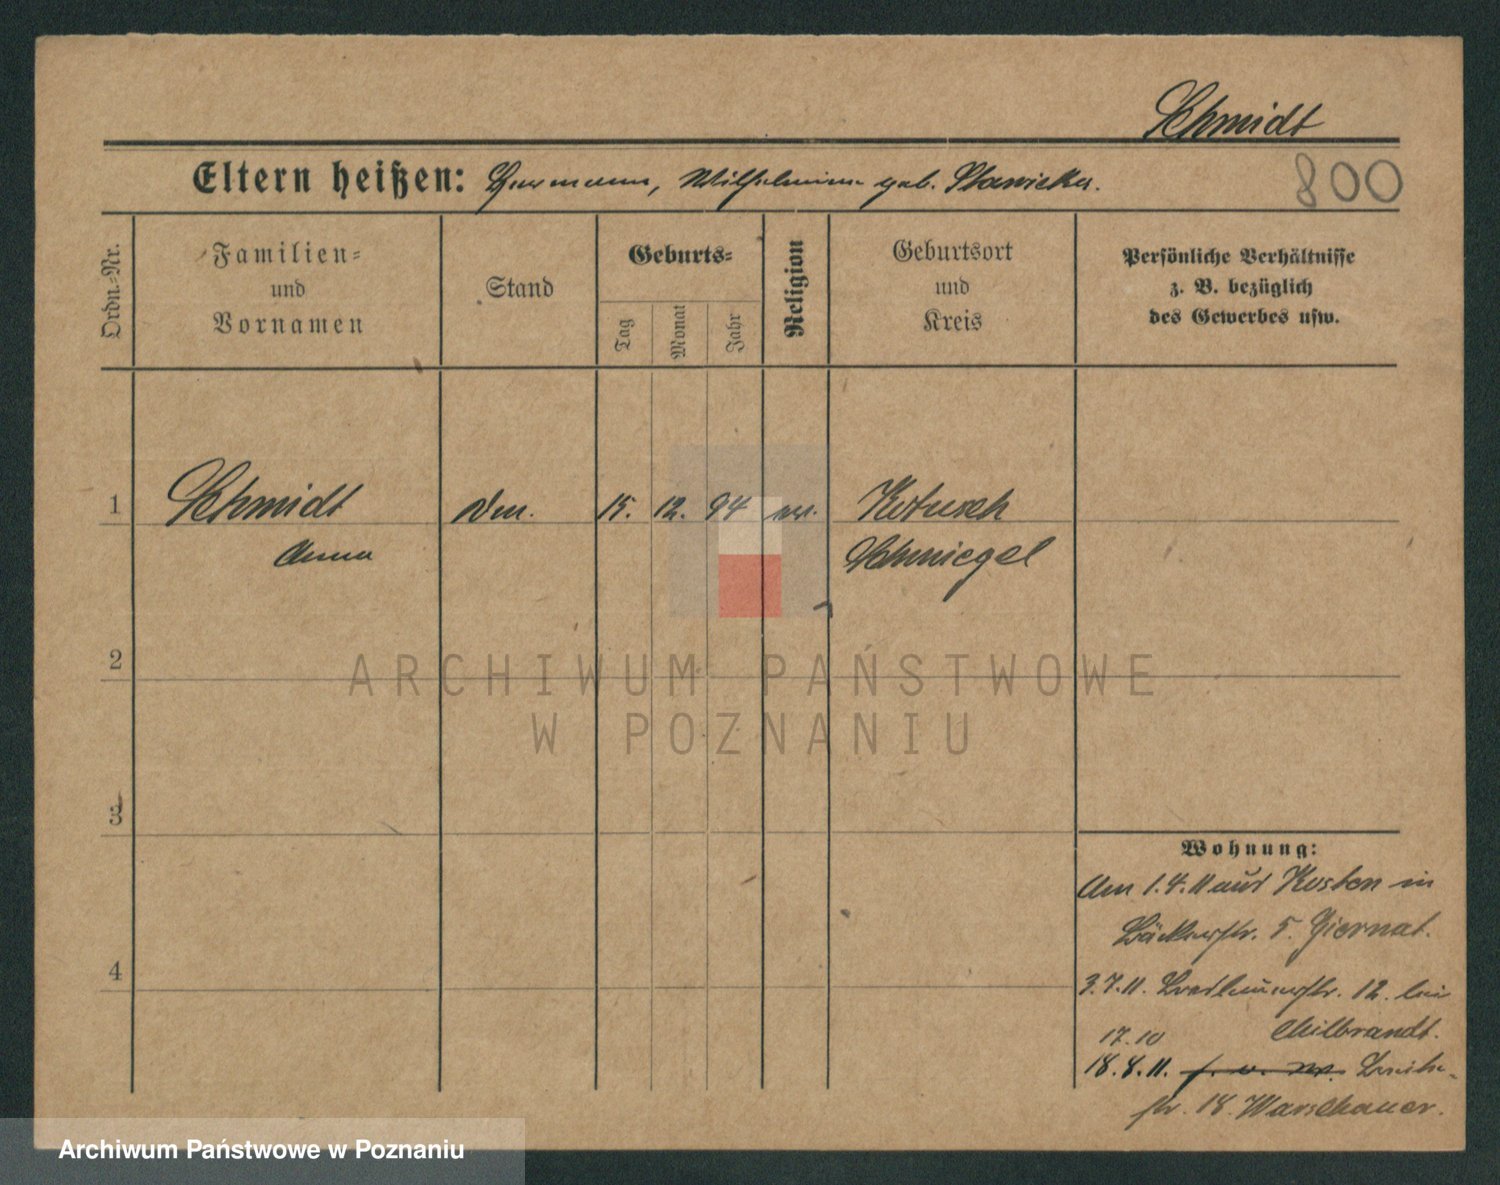 Schmidt
Eltern heißen: Hermann, Wilhelmine geb. Stawicka.
800
Ordn.-Nr.
Familien-
und
Vornamen
Stand
Geburts-
Tag
Monat
Jahr
Religion
Geburtsort
und
Kreis
Persönliche Verhältnisse
z. B. bezüglich
des Gewerbes usw.
1
Schmidt
15. 12. 94 ev.
Kotusch
Anna
Schmiegel
2
ARCHIWUM PAŃSTWOWE
W POZNANIU
3
4
Wohnung:
Am 1.4.11 aus Kosten in
Bäckerstr. 5. Giernat.
3.7.11. 12. bei
17.10 Milbrandt.
18.8.11. Breite-
str. 18. Warschauer.
Archiwum Państwowe w Poznaniu